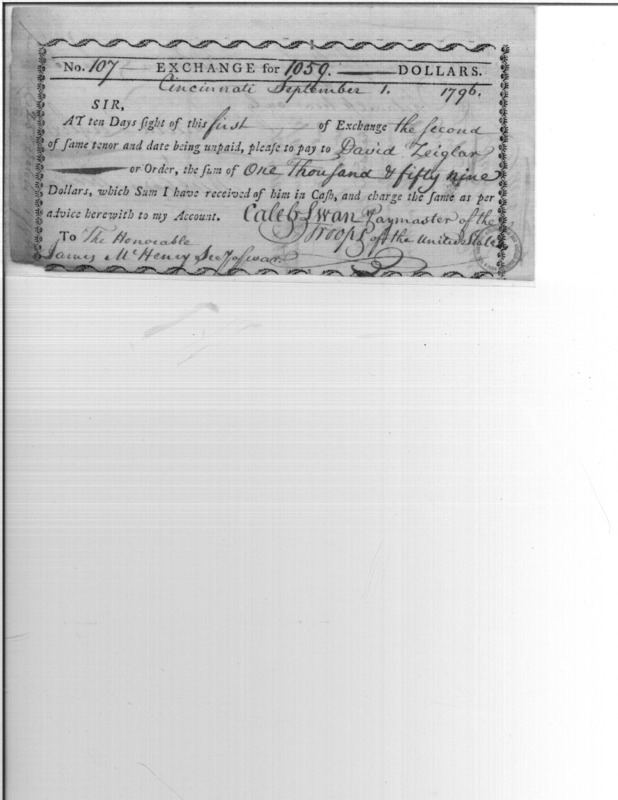 No. 107 EXCHANGE for 1059. DOLLARS.
Cincinnati September 1. 1796.
SIR,
AT ten Days sight of this first of Exchange the second
of same tenor and date being unpaid, please to pay to David Zeiglar
or Order, the sum of One Thousand & fifty nine
Dollars, which Sum I have received of him in Cash, and charge the same as per
advice herewith to my Account. Caleb Swan Paymaster of the
Troops of the United States
To The Honorable
James McHenry Secy of war.